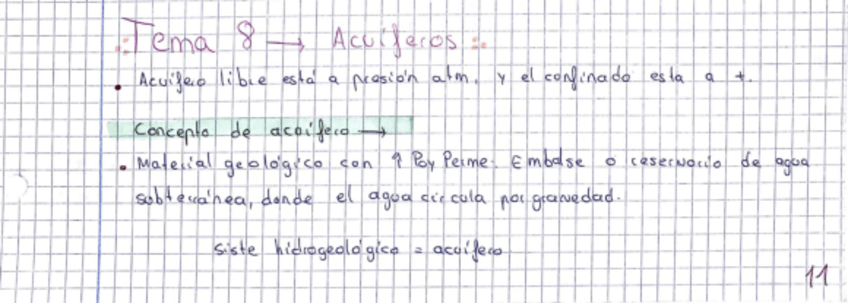 Tema 8 → Acuíferos
• Acuífero libre está a presión atm. y el confinado esta a +.
Concepto de acuífero →
• Material geológico con ↑ Po y Perme. Embalse o reservorio de agua
subterránea, donde el agua circula por gravedad.
siste hidrogeológico = acuífero
11